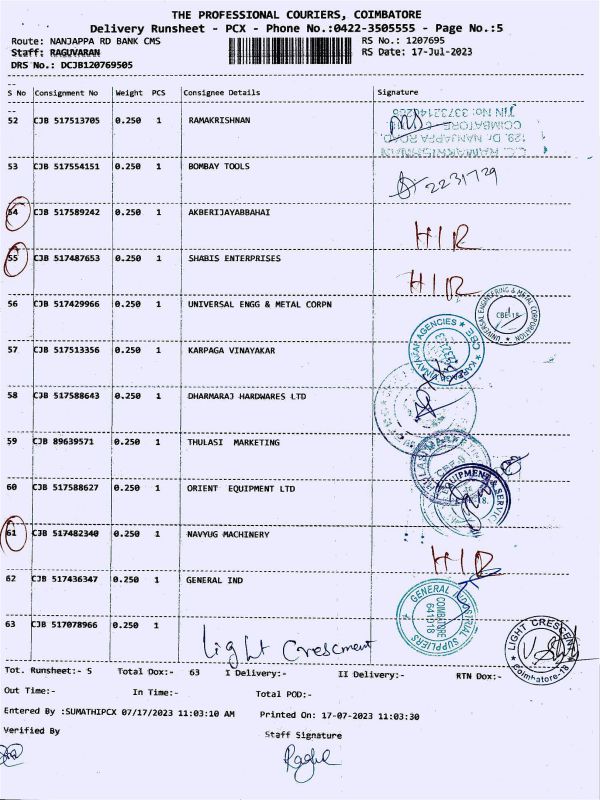 THE PROFESSIONAL COURIERS, COIMBATORE
Delivery Runsheet - PCX - Phone No.:0422-3505555 - Page No.:5
Route: NANJAPPA RD BANK CMS RS No.: 1207695
Staff: RAGUVARAN RS Date: 17-Jul-2023
DRS No.: DCJB120769505
S No Consignment No Weight PCS Consignee Details Signature
52 CJB 517513705 0.250 1 RAMAKRISHNAN
TIN NO: 33732142266
COIMBATORE
129, Dr. NANJAPPA ROAD,
53 CJB 517554151 0.250 1 BOMBAY TOOLS 2231729
54 CJB 517589242 0.250 1 AKBERIJAYABBAHAI HIR
55 CJB 517487653 0.250 1 SHABIS ENTERPRISES HIR
56 CJB 517429966 0.250 1 UNIVERSAL ENGG & METAL CORPN
UNIVERSAL ENGINEERING & METAL CORPORATION
CBE-18
57 CJB 517513356 0.250 1 KARPAGA VINAYAKAR
KARPAGA VINAYAKAR AGENCIES ★ CBE ★
58 CJB 517588643 0.250 1 DHARMARAJ HARDWARES LTD
59 CJB 89639571 0.250 1 THULASI MARKETING
60 CJB 517588627 0.250 1 ORIENT EQUIPMENT LTD
EQUIPMENT &
61 CJB 517482340 0.250 1 NAVYUG MACHINERY HIR
62 CJB 517436347 0.250 1 GENERAL IND
GENERAL INDUSTRIAL SUPPLIERS
COIMBATORE
641 018
63 CJB 517078966 0.250 1 Light Crescment
LIGHT CRESCENT
★ Coimbatore-18 ★
Tot. Runsheet:- 5 Total Dox:- 63 I Delivery:- II Delivery:- RTN Dox:-
Out Time:- In Time:- Total POD:-
Entered By :SUMATHIPCX 07/17/2023 11:03:10 AM Printed On: 17-07-2023 11:03:30
Verified By Staff Signature
Raghu